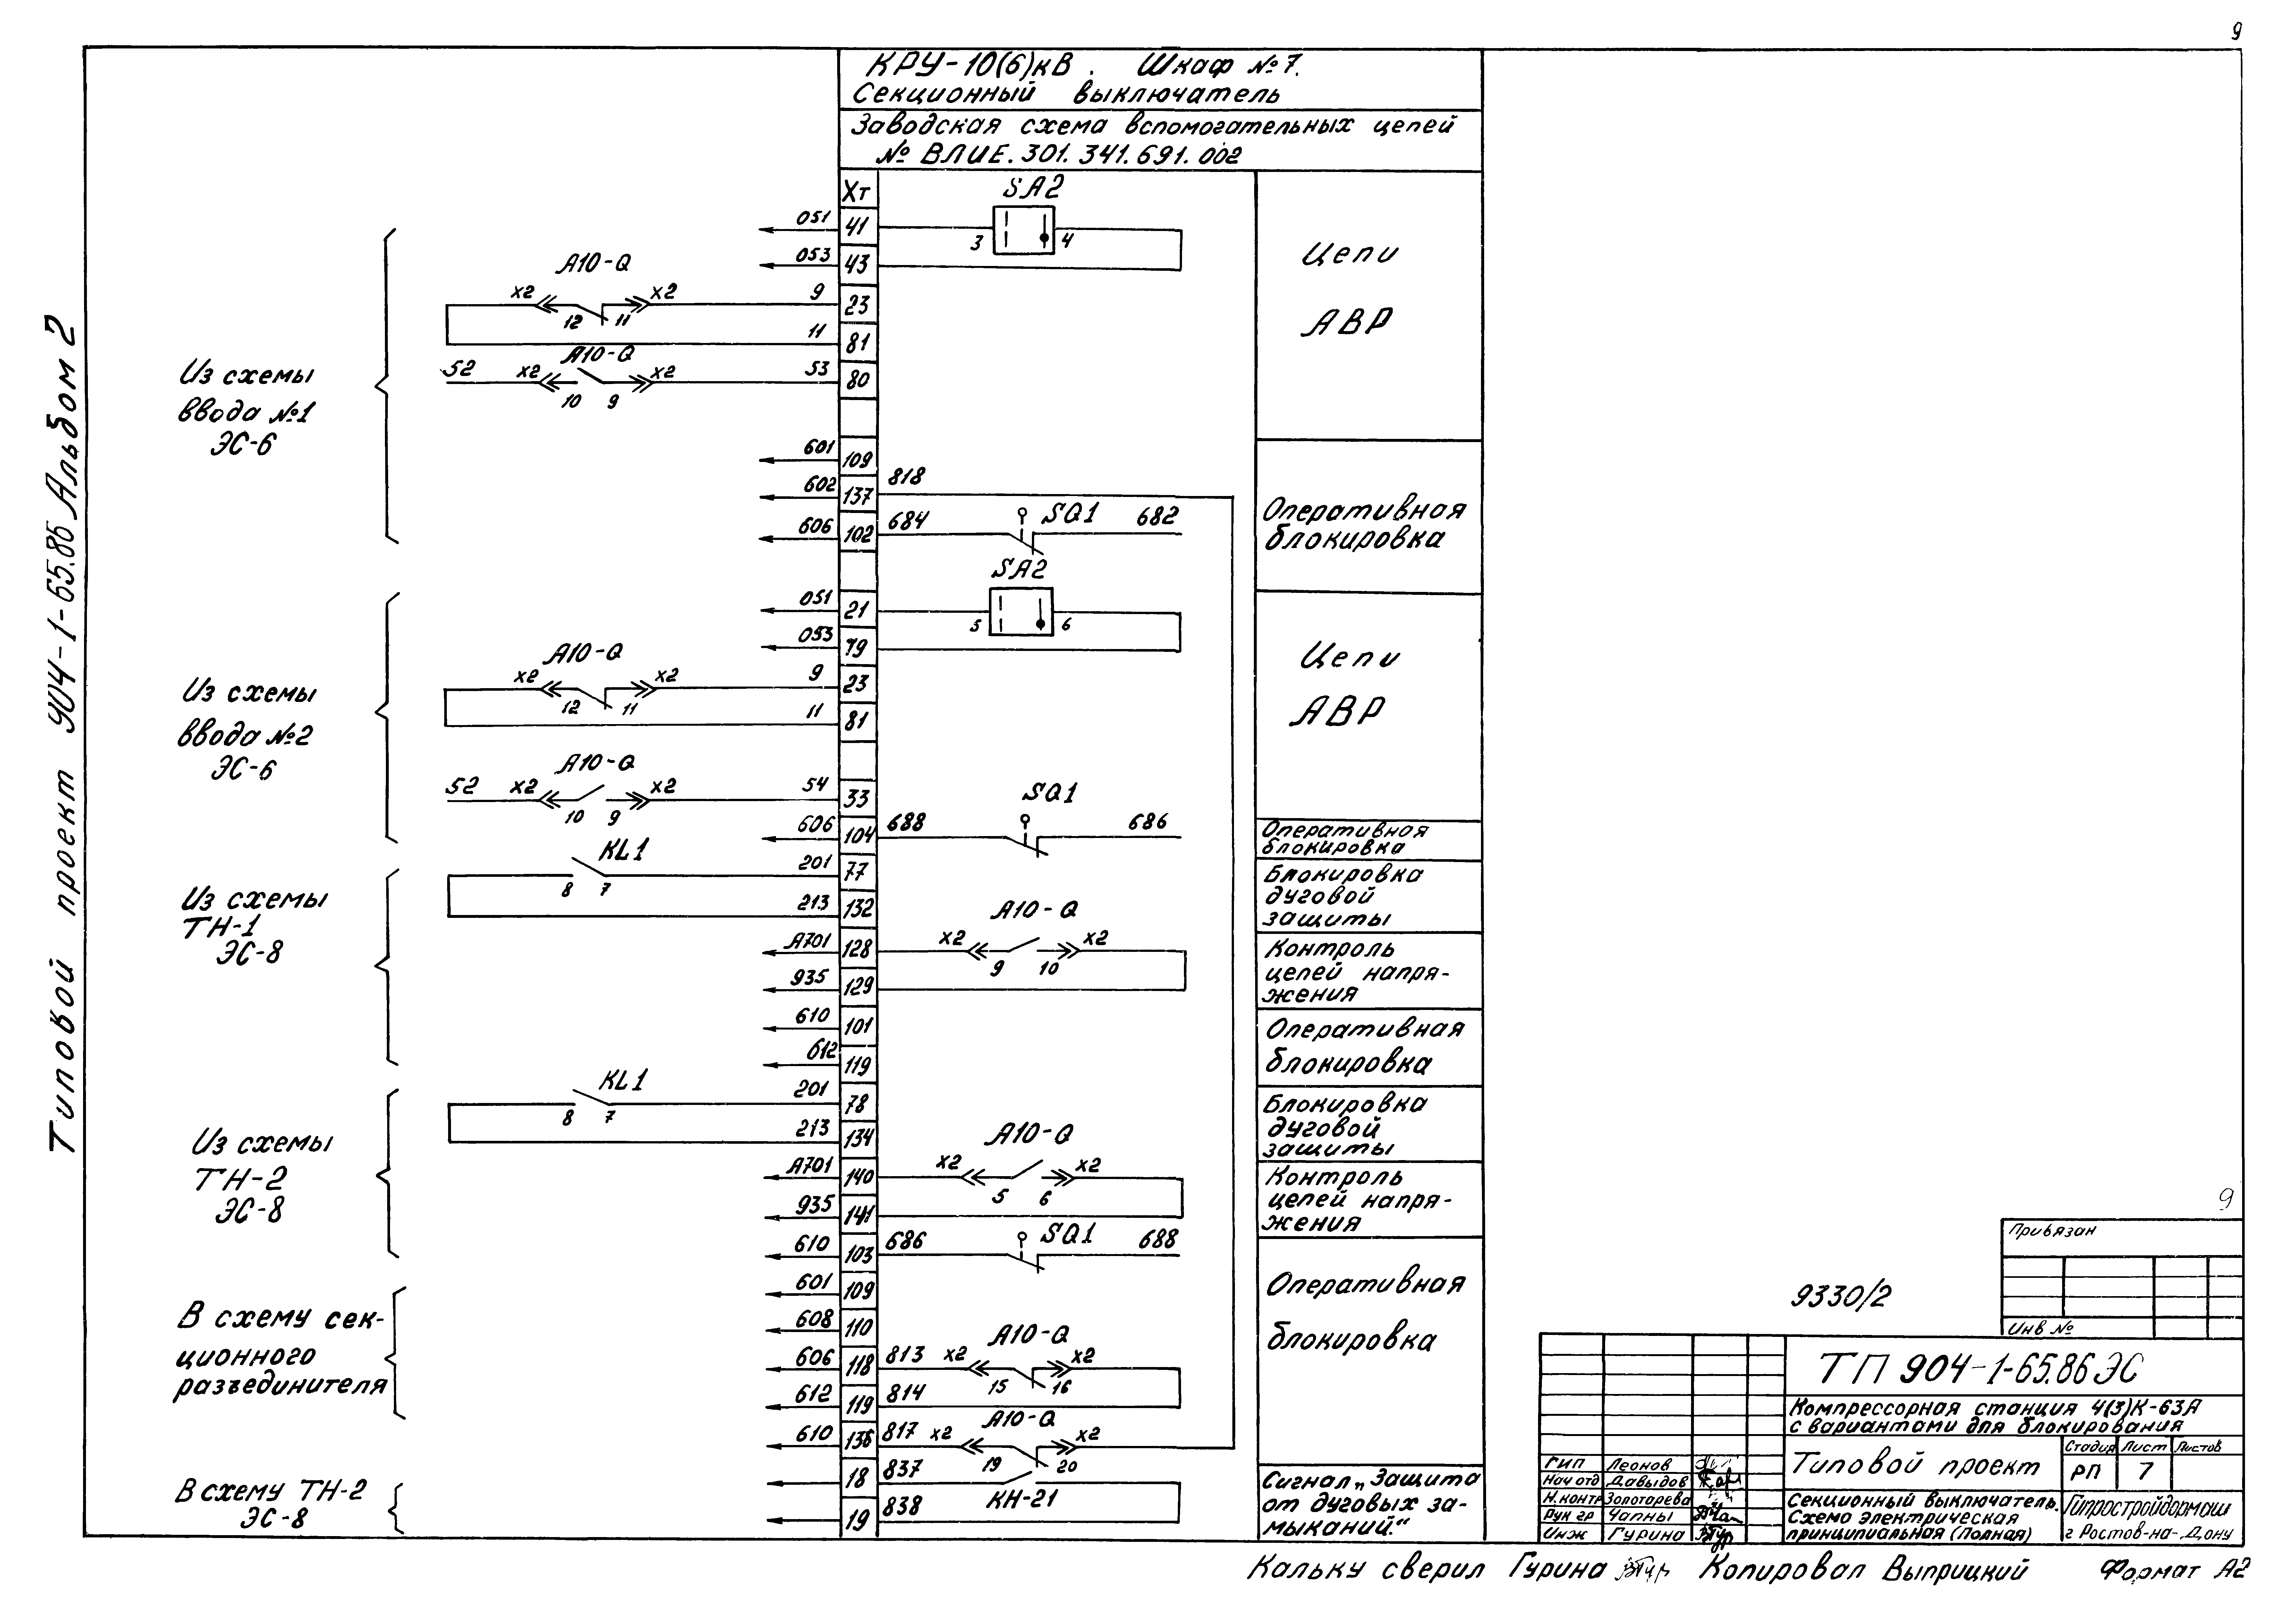 9
КРУ-10(6)кВ. Шкаф №7.
Секционный выключатель
Заводская схема вспомогательных цепей
№ ВЛИЕ.301.341.691.002
Типовой проект 904-1-65.86 Альбом 2
Хт
SA2
051 41 3 4
053 43
А10-Q
х2 х2 9 23
12 11
11 81
А10-Q
52 х2 х2 53 80
10 9
Цепи
АВР
Из схемы
ввода №1
ЭС-6
601 109
602 137 818
606 102 684 SQ1 682
Оперативная
блокировка
SA2
051 21 5 6
053 79
А10-Q
х2 х2 9 23
12 11
11 81
Цепи
АВР
Из схемы
ввода №2
ЭС-6
А10-Q
52 х2 х2 54 33
10 9
SQ1
606 104 688 686
Оперативная
блокировка
KL1
201 77
8 7
213 132
Блокировка
дуговой
защиты
Из схемы
ТН-1
ЭС-8
А10-Q
А701 128 х2 х2
9 10
935 129
Контроль
цепей напря-
жения
610 101
612 119
Оперативная
блокировка
KL1
201 78
8 7
213 134
Блокировка
дуговой
защиты
Из схемы
ТН-2
ЭС-8
А10-Q
А701 140 х2 х2
5 6
935 141
Контроль
цепей напря-
жения
610 103 686 SQ1 688
601 109
608 110
А10-Q
606 118 813 х2 х2
15 16
612 119 814
А10-Q
610 136 817 х2 х2
19 20
Оперативная
блокировка
В схему сек-
ционного
разъединителя
18 837
КН-21
19 838
Сигнал „Защита
от дуговых за-
мыканий."
В схему ТН-2
ЭС-8
9
Привязан
Инв №
9330/2
ТП 904-1-65.86 ЭС
Компрессорная станция 4(3)К-63А
с вариантами для блокирования
Типовой проект
Стадия Лист Листов
РП 7
ГИП Леонов
Нач отд Давыдов
Н.контр Золотарева
Рук гр Чапны
Инж Гурина
Секционный выключатель.
Схема электрическая
принципиальная (Полная)
Гипростройдормаш
г Ростов-на-Дону
Кальку сверил Гурина Копировал Выприцкий Формат А2